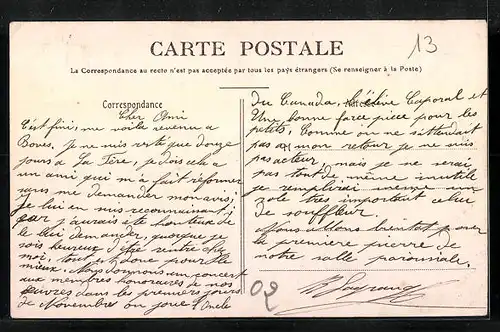 CARTE POSTALE
13
La Correspondance au recto n'est pas acceptée par tous les pays étrangers (Se renseigner à la Poste)
Correspondance
Cher Ami
C'est fini, me voila revenu a
Boves. Je ne suis resté que douze
jours a La Fère, je dois cela a
un ami qui m'a fait réformer
sans me demander mon avis;
je lui en suis reconnaissant,
car j'aurais été honteux de
le lui demander, quoique je
sois heureux d'être rentré chez
moi, tout est donc pour le
mieux. Nous donnons un concert
aux membres honoraires de nos
œuvres dans les premiers jours
de Novembre on joue l'Oncle
du Canada, l'élève Caporal et
Une bonne farce pièce pour les
petits, Comme on ne s'attendait
pas a mon retour je ne suis
pas acteur, mais je ne serai
pas tout de même inutile
je remplirai même un
role très important celui
de souffleur.
Nous allons bientôt poser
la première pierre de
notre salle paroissiale.
02